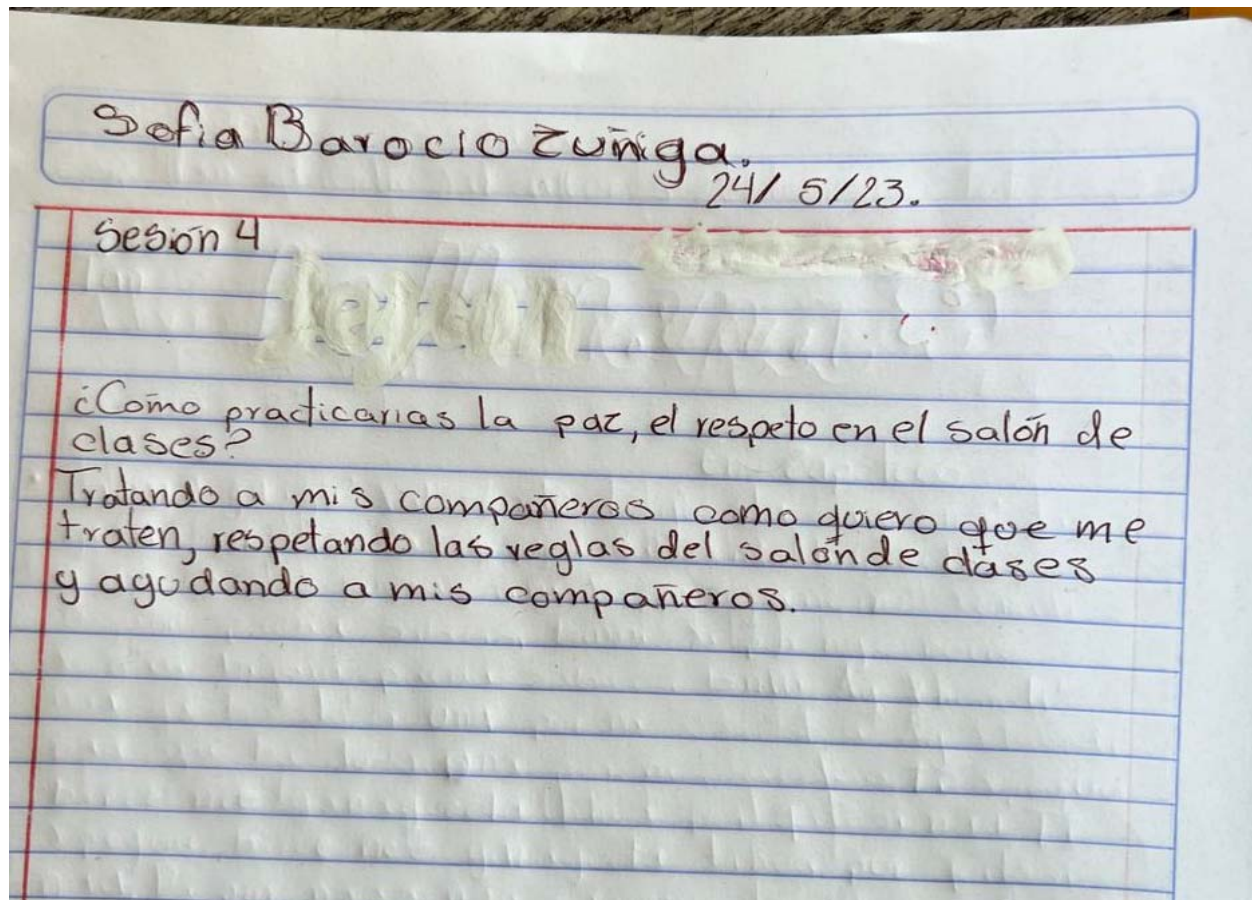 Sofia Barocio Zuñiga.
24/ 5/23.
Sesión 4
¿Cómo practicarias la paz, el respeto en el salón de
clases?
Tratando a mis compañeros como quiero que me
traten, respetando las reglas del salón de clases
y agudando a mis compañeros.